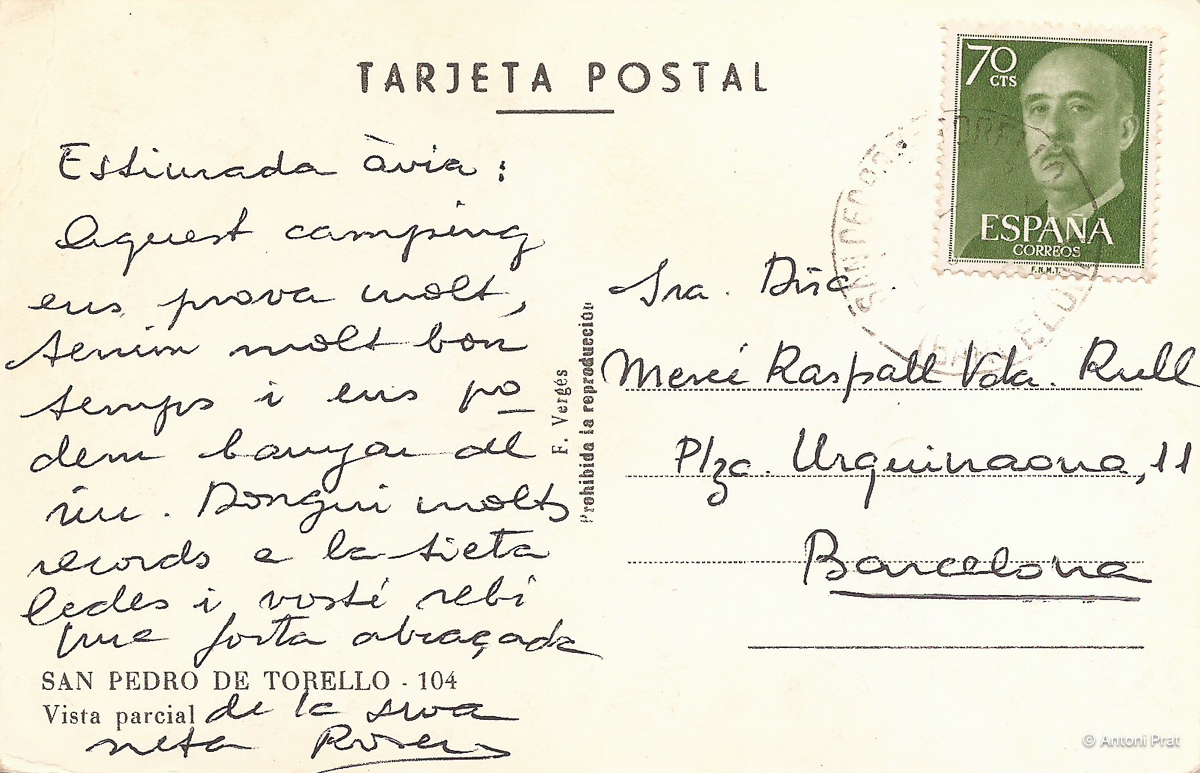 TARJETA POSTAL
70
CTS
ESPAÑA
CORREOS
F.N.M.T.
Estimada àvia:
Aquest camping
ens prova molt,
tenim molt bon
temps i ens po
dem banyar al
riu. Dongui molts
records a la tieta
i vosté rebi
una forta abraçada
de la seva
neta Roser
SAN PEDRO DE TORELLO - 104
Vista parcial
F. Vergés
Prohibida la reproducción
Sra. Dña.
Mercé Raspall Vda. Rull
Plza. Urquinaona, 11
Barcelona
© Antoni Prat